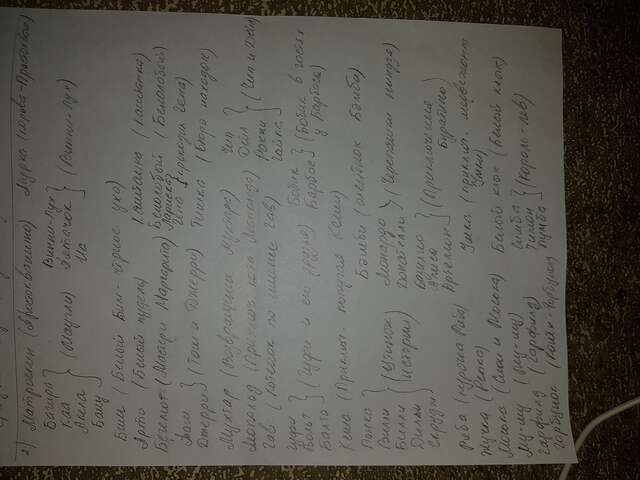 2) Матроскин (Простоквашино) Мурка (корова-Простокваш)
Багира Винни-Пух
Каа Пятачок
Акела (Маугли) Иа (Винни-Пух)
Балу
Бим (Белый Бим - чёрное ухо)
Арто (Белый пудель) Каштанка (Каштанка)
Бегемот (Мастер и Маргарита) Белолобый (Белолобый)
Лариска
Том Гена (крокодил Гена)
Джерри (Том и Джерри) Тишка (Бюро находок)
Мухтар (Возвращение Мухтара) Чип
Леопольд (Приключ. кота Леопольда) Дейл
Гав (Котёнок по имени Гав) Рокки (Чип и Дейл)
Гайка
Гуфи Бобик
Вольт (Гуфи и его друзья) Барбос (Бобик в гостях
Балто у Барбоса)
Кеша (Приключ. попугая Кеши)
Понка Бэмби (оленёнок Бэмби)
Вилли Леонардо
Билли (Утиные Донателло (Черепашки ниндзя)
Дилли истории) Базилио
Скрудж Алиса (Приключения
Артемон Буратино)
Ряба (курочка Ряба) Умка (приключ. медвежонка
Жучка (Репка) Умки)
Моська (Слон и Моська) Белый клык (Белый клык)
Му-му (Му-му) Симба
Гарфилд (Гарфилд) Тимон (Король-лев)
Горбунок (Конёк-Горбунок) Пумба